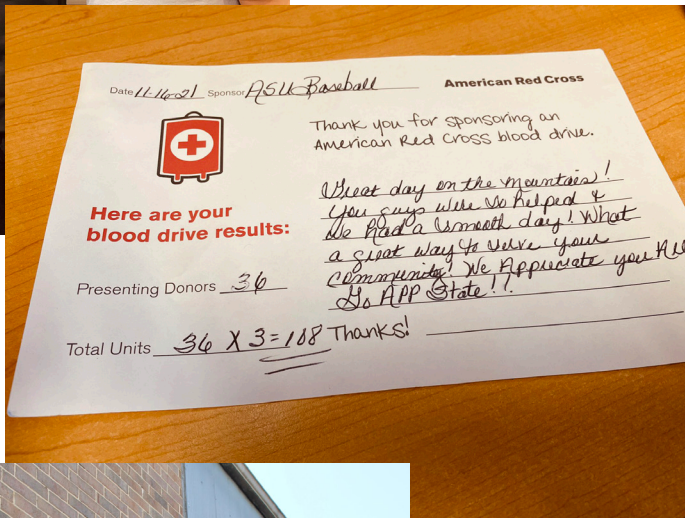 Date 11-16-21 Sponsor ASU Baseball American Red Cross
Thank you for sponsoring an
American Red Cross blood drive.
Here are your
blood drive results:
Presenting Donors 36
Total Units 36 X 3 = 108
Great day on the Mountain!
you guys were so helped &
We had a smooth day! What
a great way to serve your
Community! We Appreciate you All
Go APP State!!
Thanks!